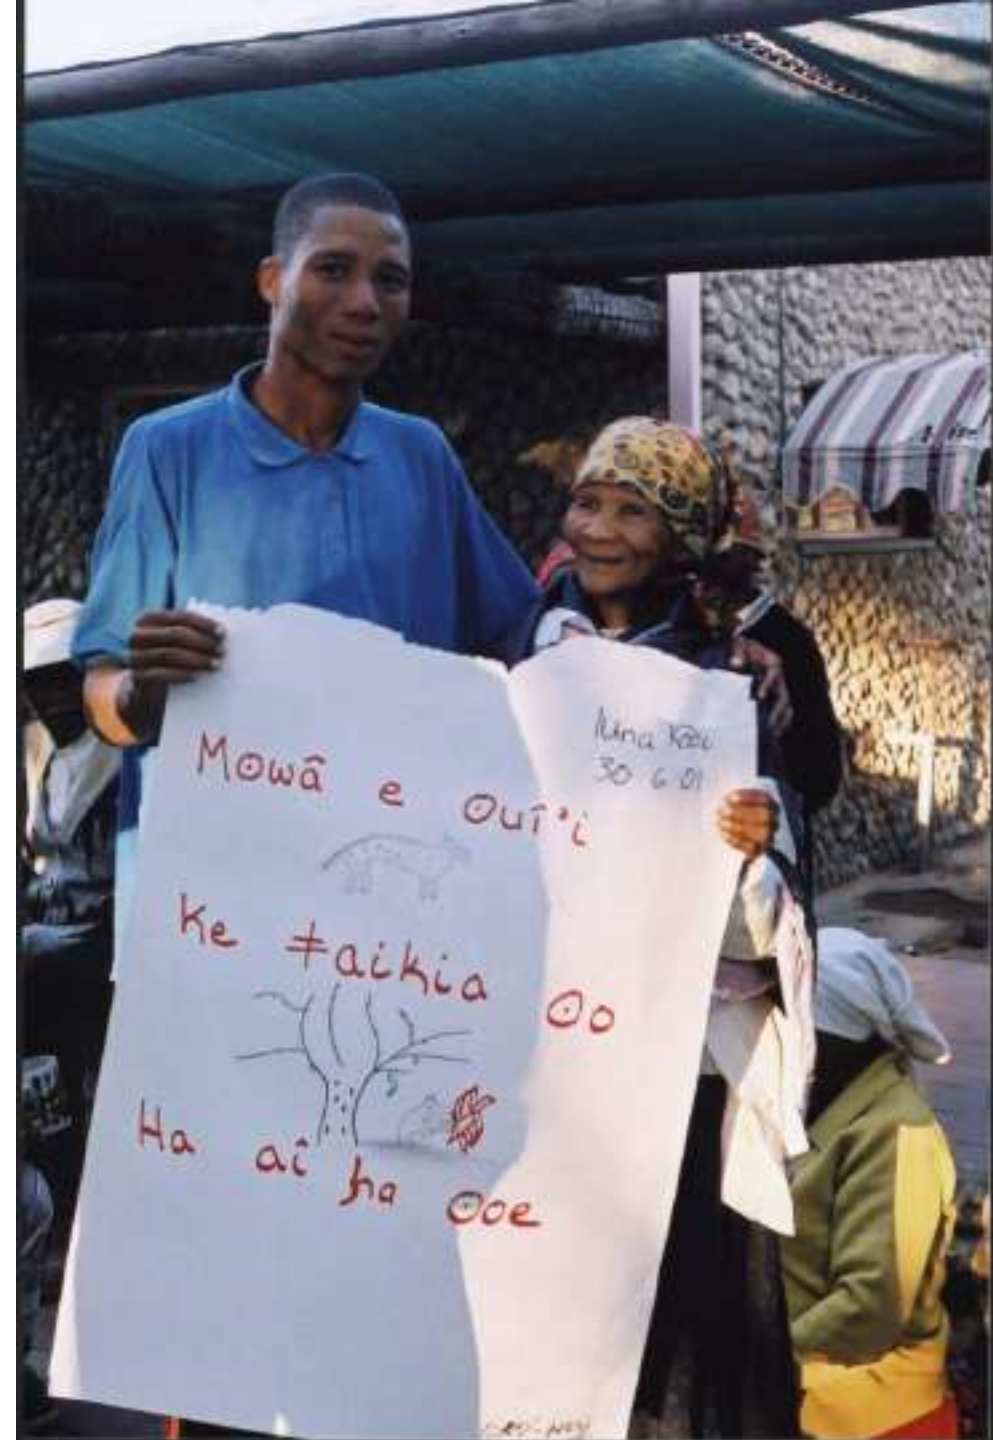 30 6 01
Mowâ e ʘuî'i
Ke ǂaikia ʘo
Ha aî ha ʘoe